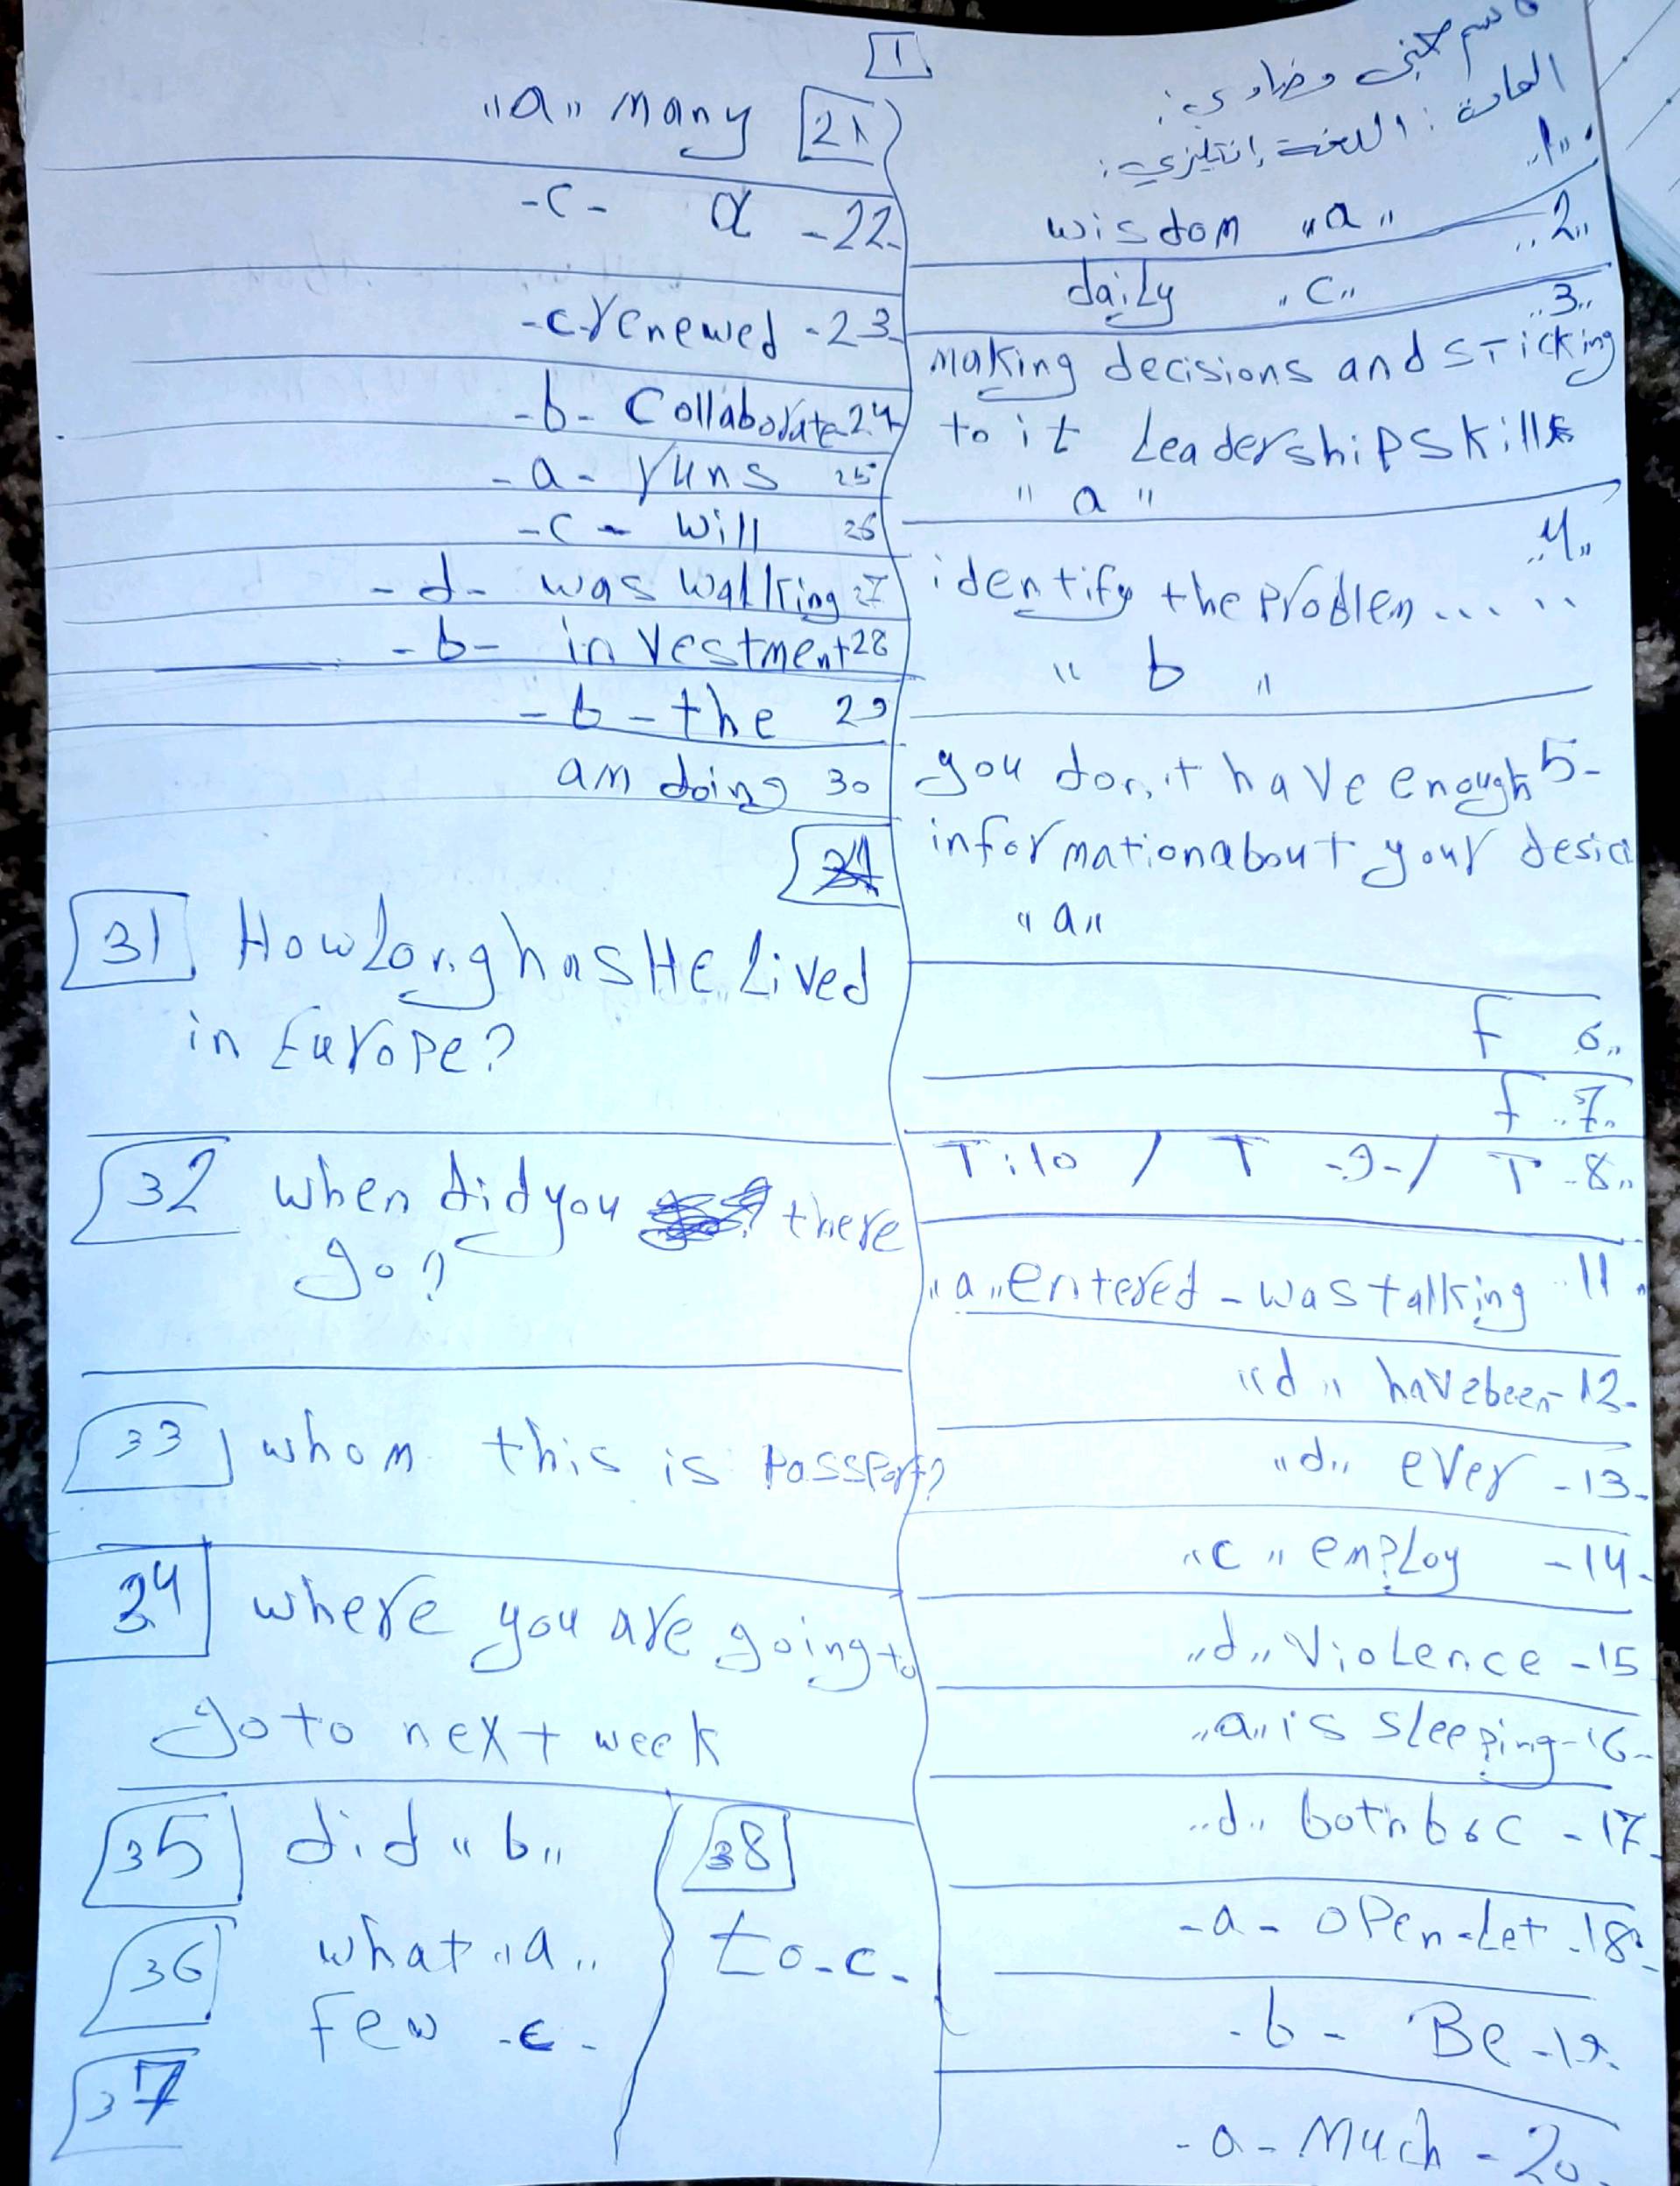 1
المادة: اللغة إنتليزي:
..1..
wisdom "a" ..2..
daily "c" ..3..
making decisions and sticking
to it Leadership skills
"a"
..4..
identify the problem... ..
"b"
you don,t have enough 5-
information about your desici
"a"
f 6..
f ..7..
T:10 / T -9-/ T -8..
"a" entered - was talking 11.
"d" have been - 12-
"d" ever - 13-
"c" employ - 14-
"d" Violence - 15
"a" is sleeping - 16-
..d.. both b & c - 17-
-a- open-Let -18-
-b- Be -19-
-a- Much - 20-
"a" many 21
-c- a -22-
-c- renewed -23-
-b- Collaborate 24
-a- runs 25
-c- will 26
-d- was walking 27
-b- investment 28
-b- the 29
am doing 30
31 How Long has He Lived
in Europe?
32 when did you there
go?
33 whom this is Passport?
34 where you are going to
go to next week
35 did "b"
36 what "a"
few -c-
37
38
to -c-